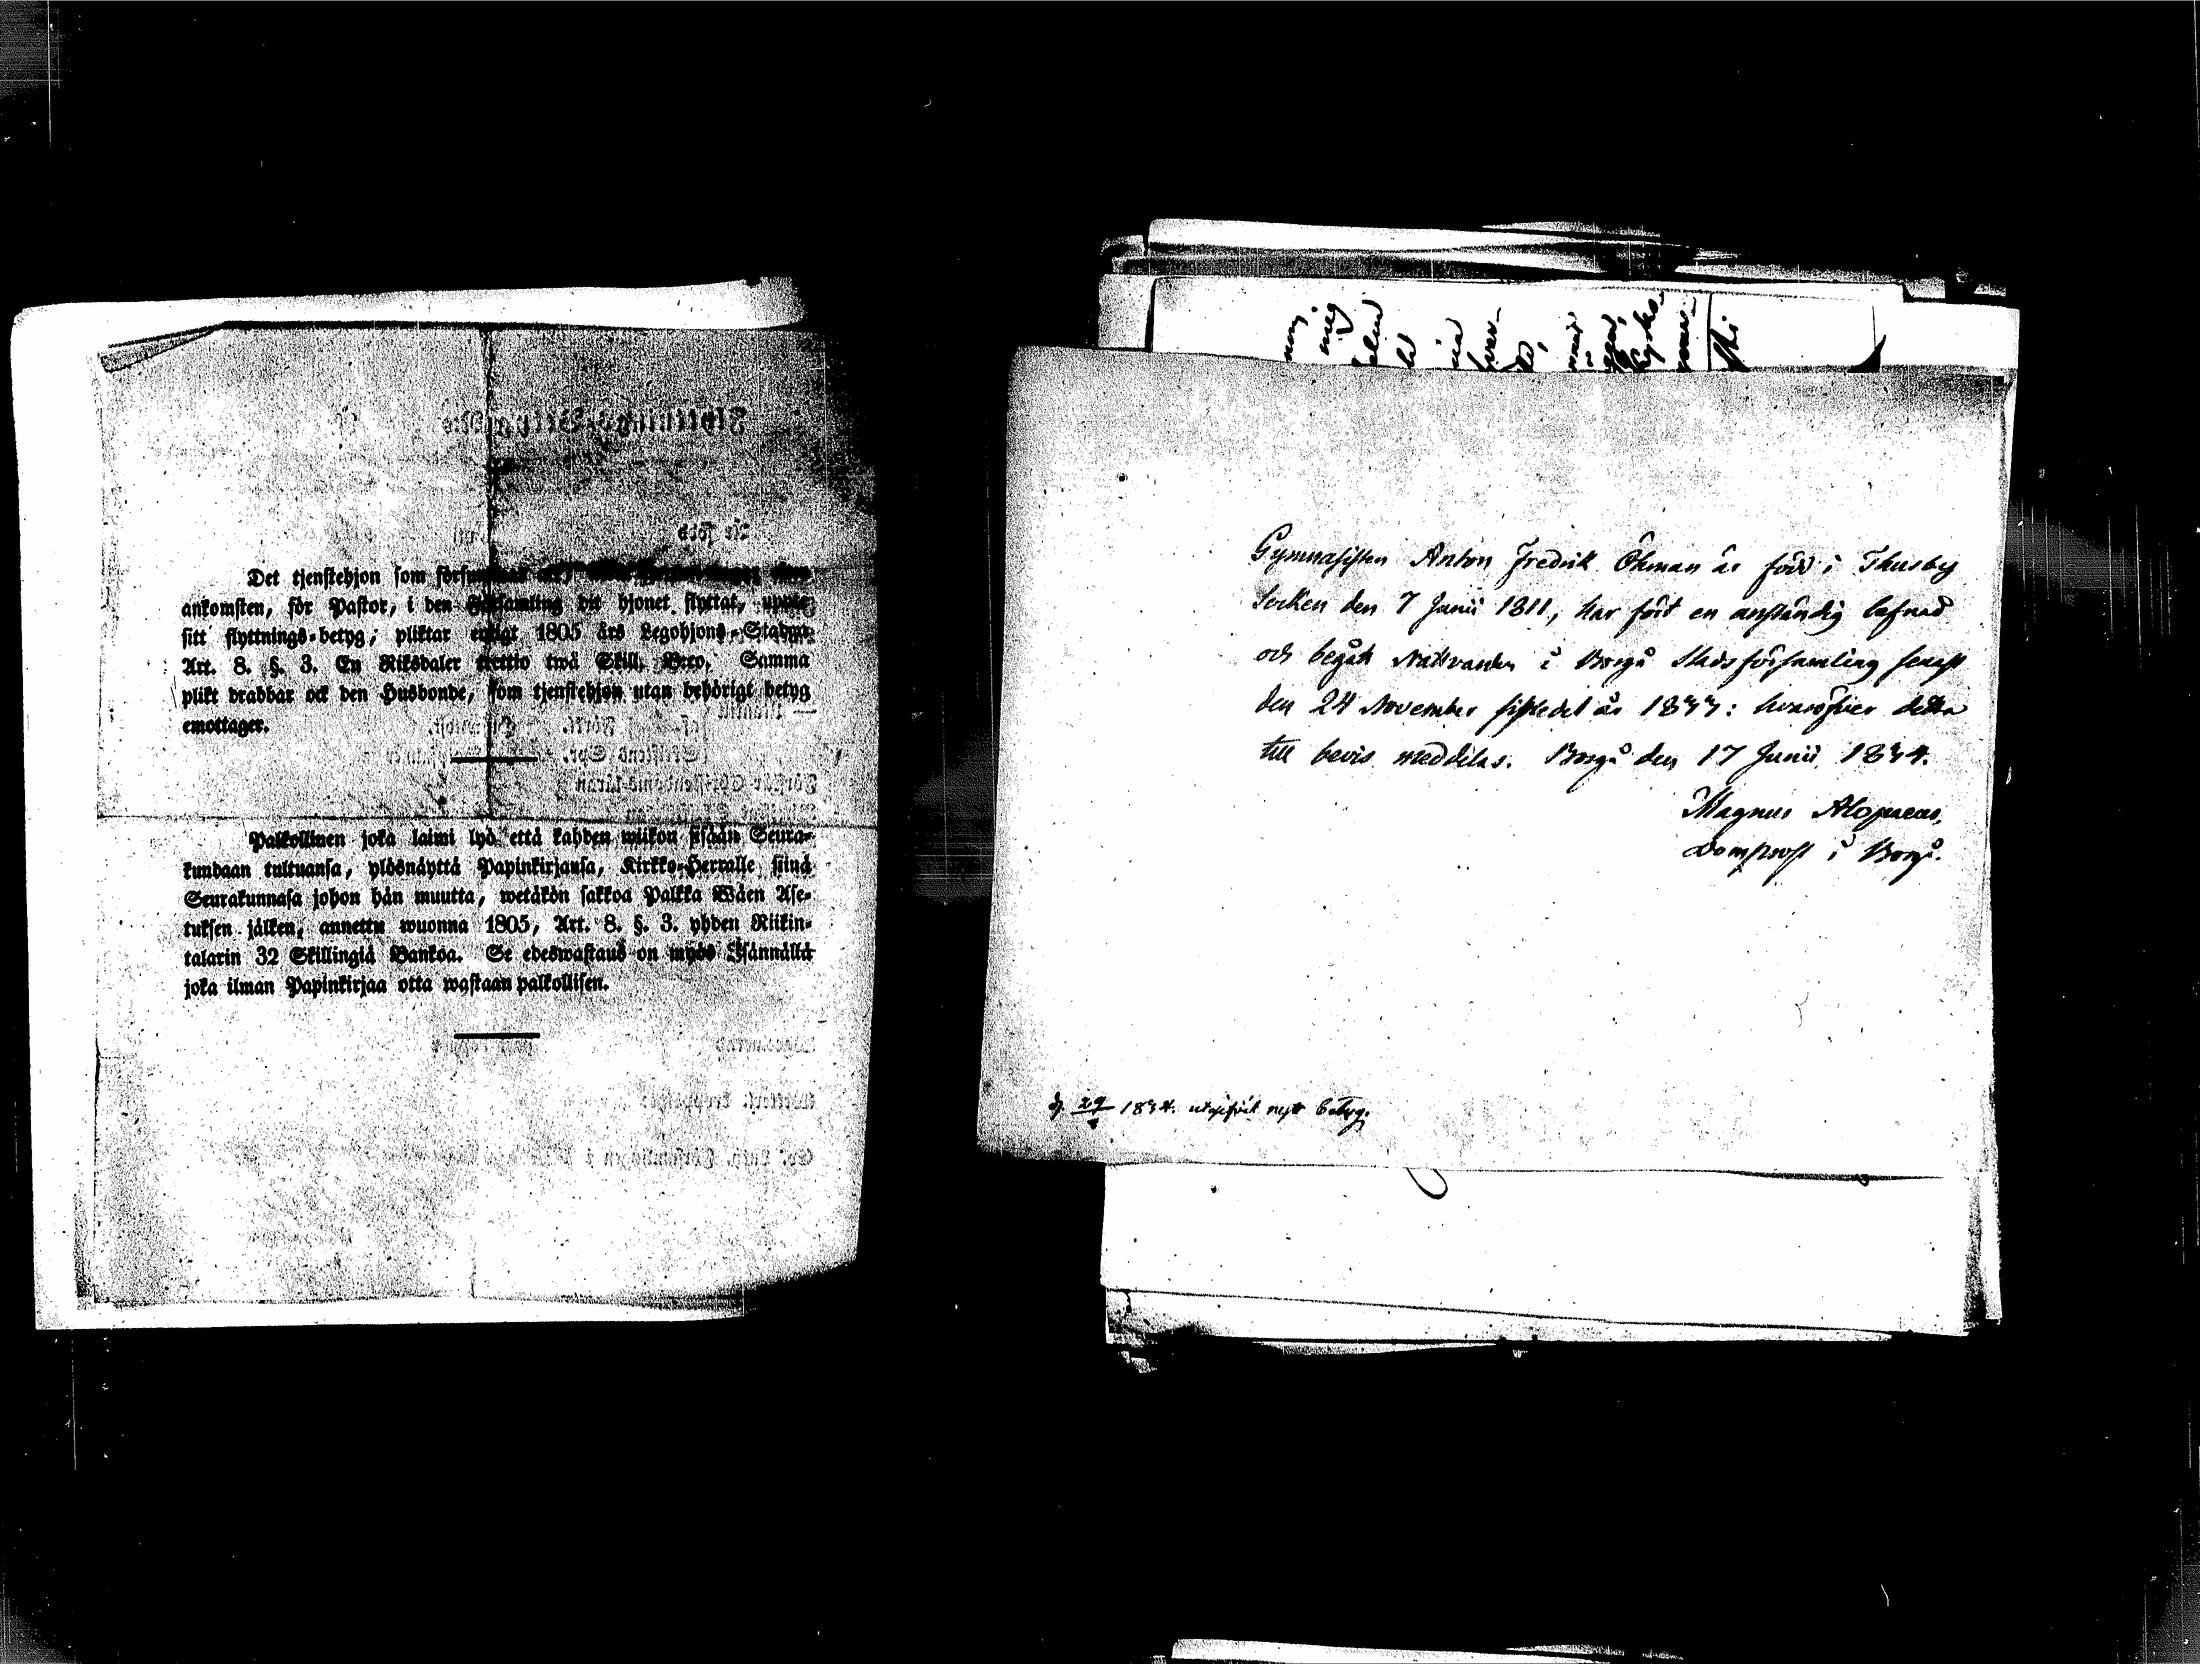 Det tjenstehjon som
ankomsten, för Pastor, i den Församling dit hjonet flyttat, uppte
sitt flyttnings-betyg, pliktar enligt 1805 års Legohjons-Stadga
Art. 8. §. 3. En Riksdaler trettio twå Skill. Bco. Samma
plikt drabbar ock den Husbonde, som tjenstehjon utan behörigt betyg
emottager.
Palkollinen joka laimi lyö että kahden wiikon sisään Seura-
kundaan tultuansa, ylösnäyttä Papinkirjansa, Kirkko-Herralle siinä
Seurakunnasa johon hän muutta, wetäkön sakkoa Palkka Wäen Ase-
tuksen jälken, annettu wuonna 1805, Art. 8. §. 3. yhden Riikin-
talarin 32 Skillingiä Bankoa. Se edeswastaus on myös Isännällä
joka ilman Papinkirjaa otta wastaan palkollisen.
Gymnasisten Anton Fredrik Öhman är född i Thusby
Socken den 7 Junii 1811, har fört en anständig lefnad
och begått Nattvarden i Borgå Stadsförsamling senast
den 24 November sistledet år 1833: hvaröfver detta
till bevis meddelas. Borgå den 17 Junii 1834.
Magnus Alopaeus,
Domprost i Borgå.
29 1834. nytt betyg.